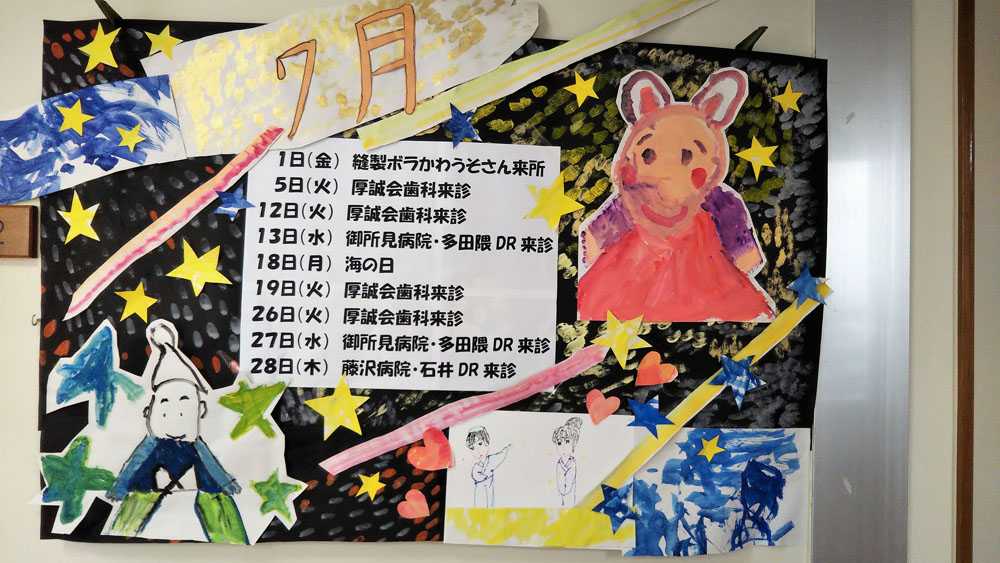 7月
1日(金) 縫製ボラかわうそさん来所
5日(火) 厚誠会歯科来診
12日(火) 厚誠会歯科来診
13日(水) 御所見病院・多田隈DR来診
18日(月) 海の日
19日(火) 厚誠会歯科来診
26日(火) 厚誠会歯科来診
27日(水) 御所見病院・多田隈DR来診
28日(木) 藤沢病院・石井DR来診